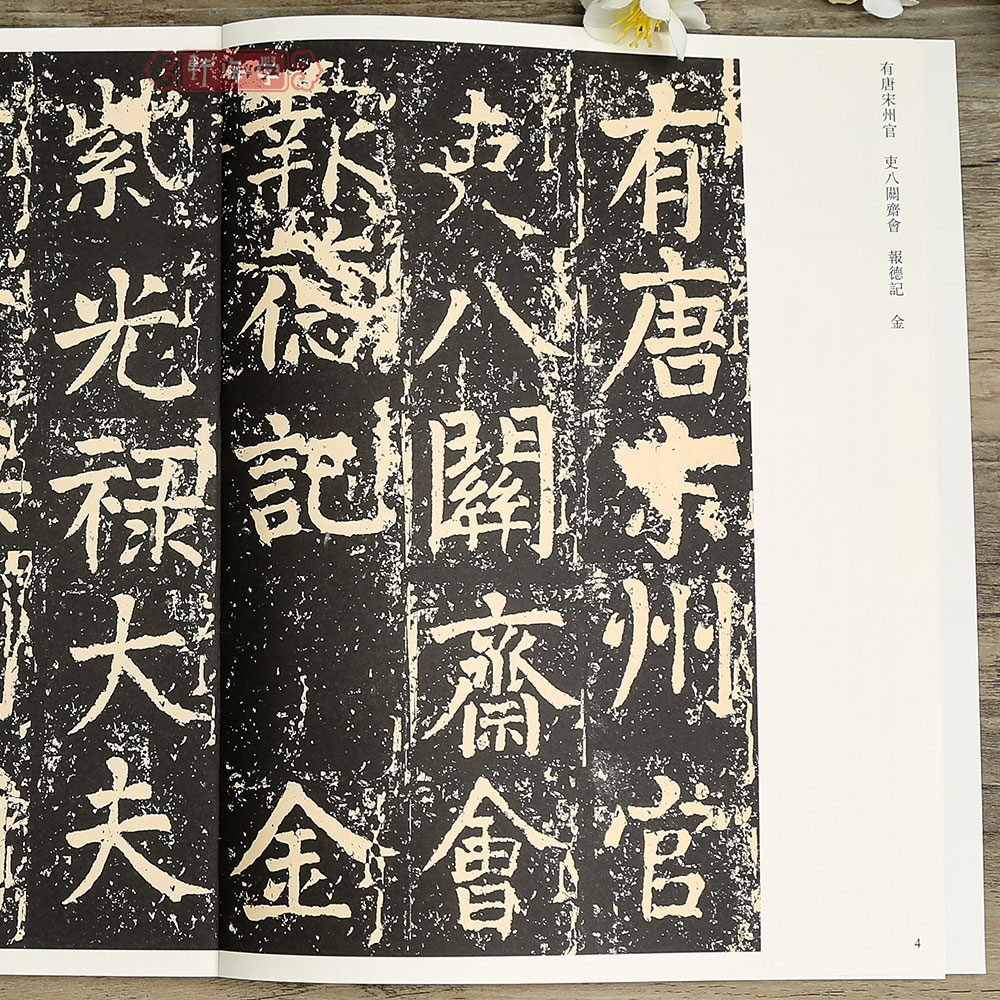 有唐宋州官　吏八關齋會　報德記　金
有唐宋州官
吏八關齋會
報德記金
紫光祿大夫
軒海學
4